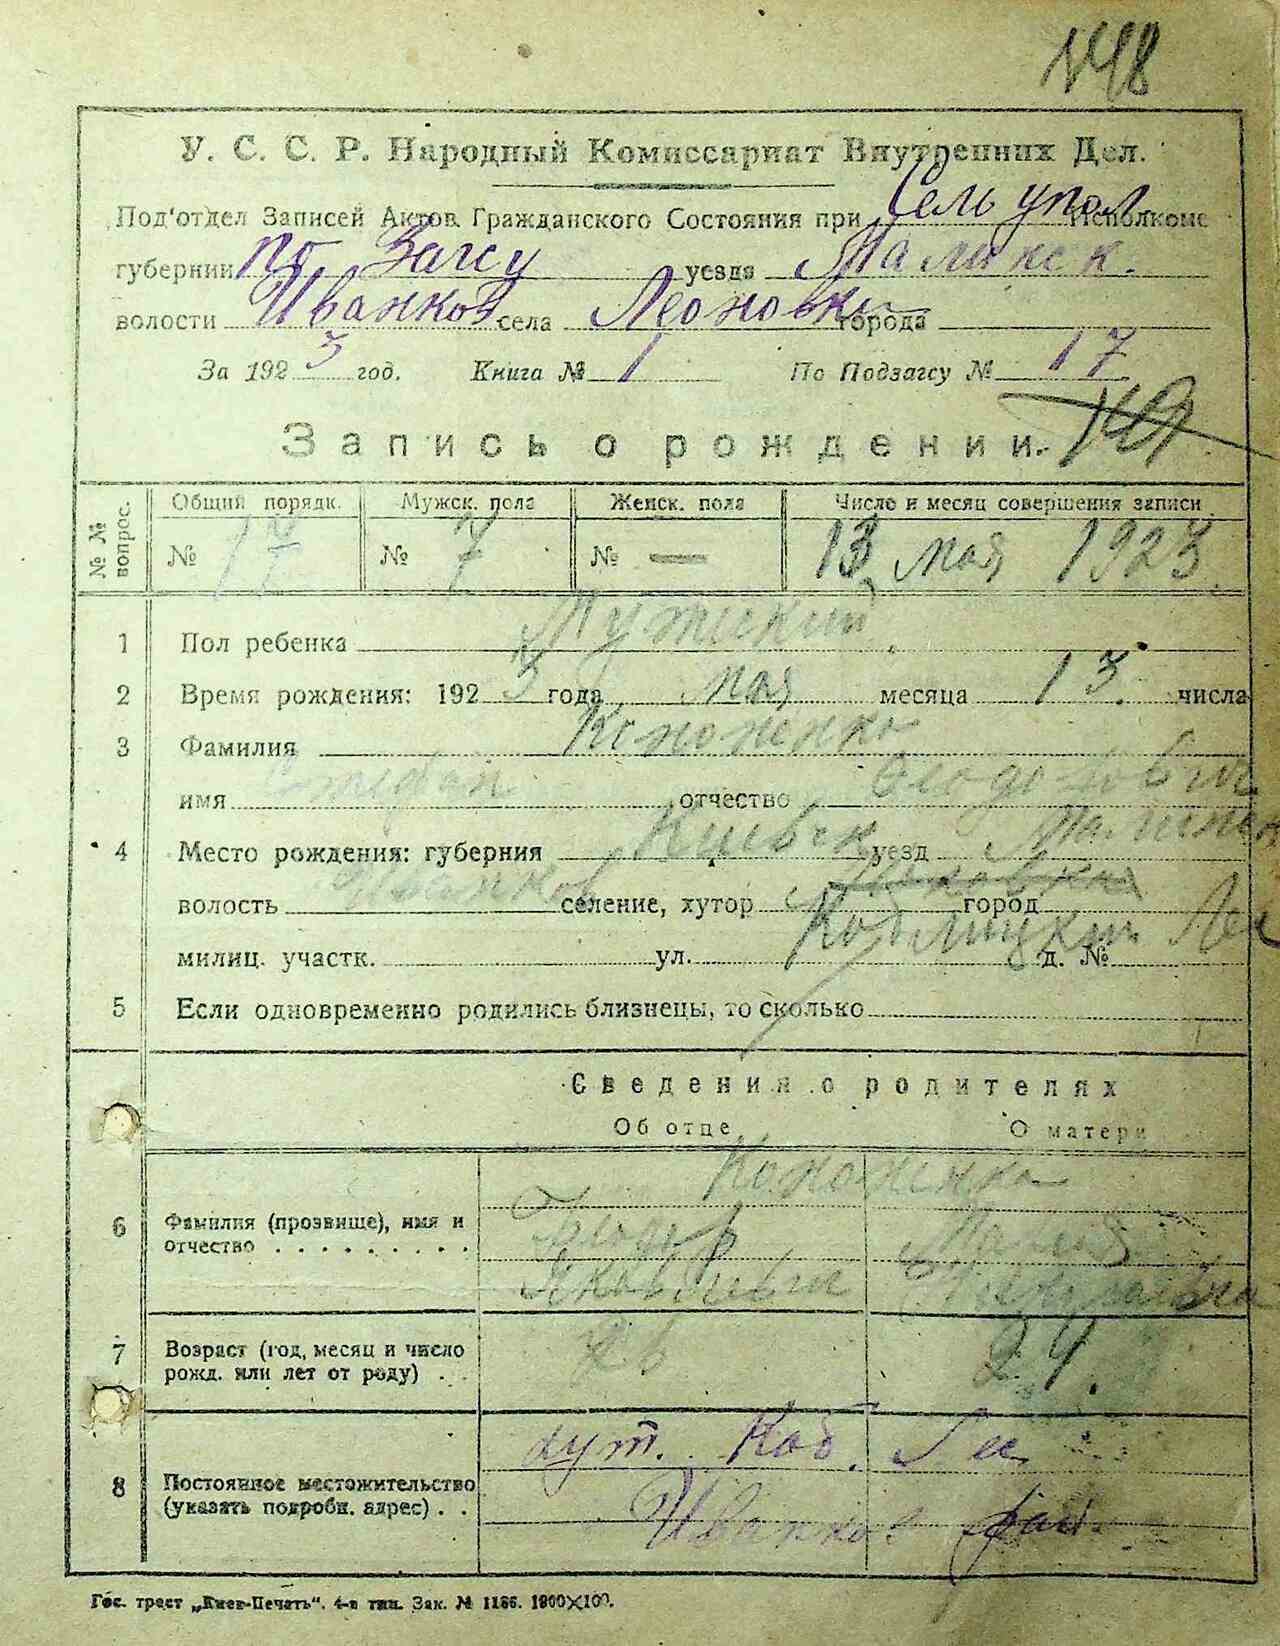 148
У. С. С. Р. Народный Комиссариат Внутренних Дел.
Под'отдел Записей Актов Гражданского Состояния при Сель упол Исполкоме
губернии по Загсу уезда Малинск.
волости Иванков села Леоновки города
За 1923 год. Книга № 1 По Подзагсу № 17
Запись о рождении.
№№ вопрос. Общий порядк. Мужск. пола Женск. пола Число и месяц совершения записи
№ 17 № 7 № — 13 мая 1923
1 Пол ребенка Мужский
2 Время рождения: 1923 года мая месяца 13 числа
3 Фамилия Кононенко
имя Стефан отчество
4 Место рождения: губерния Киевск уезд Малинск
волость Иванков селение, хутор город
милиц. участк. ул. Кобылицкий Лес д. №
5 Если одновременно родились близнецы, то сколько
Сведения о родителях
Об отце О матери
Кононенко
6 Фамилия (прозвище), имя и отчество
Феодор Мария
Яковлевич
7 Возраст (год, месяц и число рожд. или лет от роду) 24
хут. Коб. Лес
8 Постоянное местожительство (указать подробн. адрес)
Иванков. рай.
Гос. трест „Киев-Печать“. 4-я тип. Зак. № 1186. 1900×100.